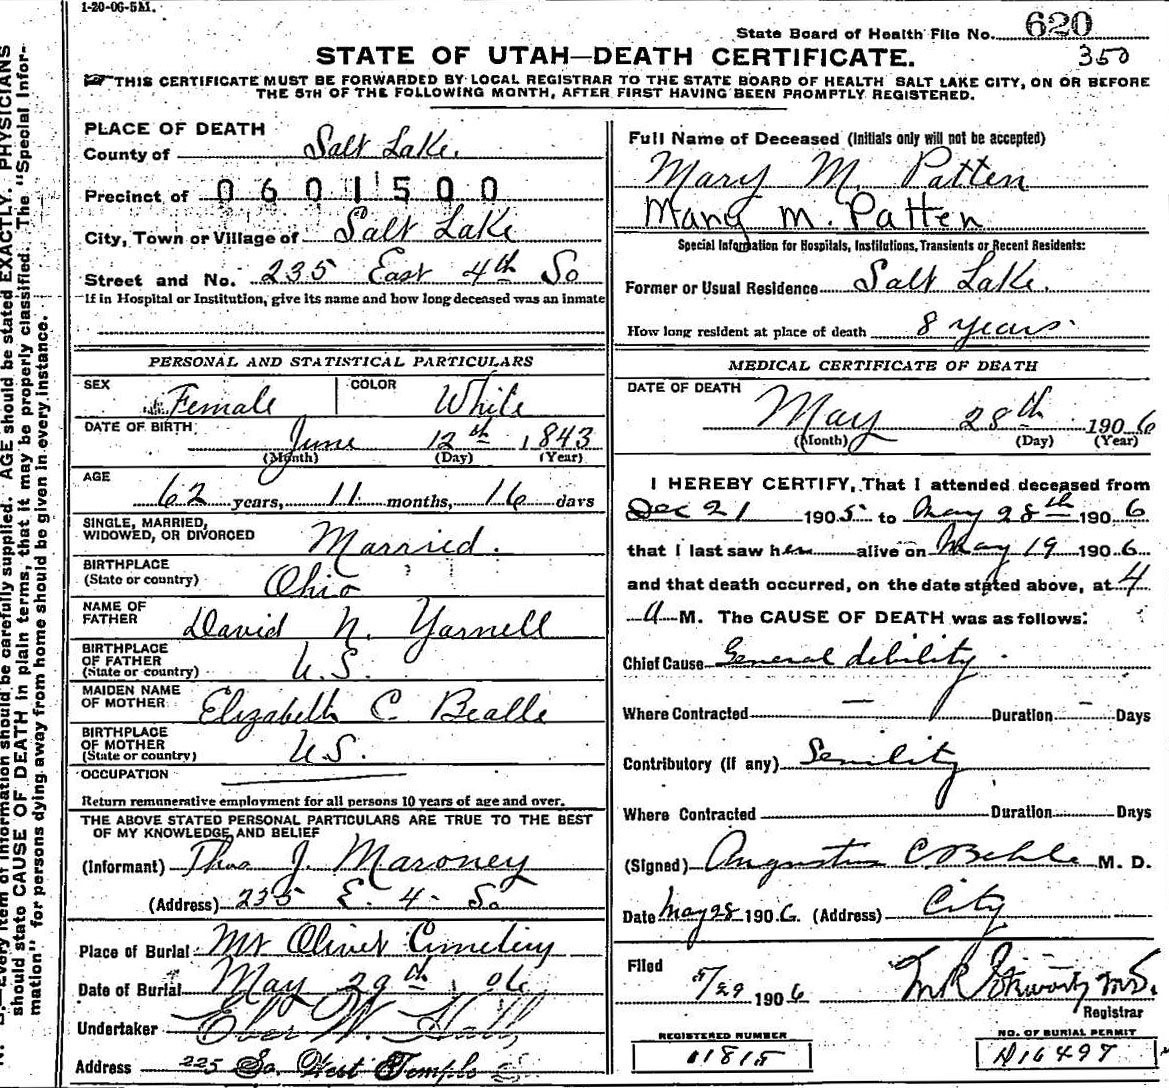 1-20-06-5M.
State Board of Health File No. 620
350
STATE OF UTAH—DEATH CERTIFICATE.
THIS CERTIFICATE MUST BE FORWARDED BY LOCAL REGISTRAR TO THE STATE BOARD OF HEALTH SALT LAKE CITY, ON OR BEFORE
THE 5TH OF THE FOLLOWING MONTH, AFTER FIRST HAVING BEEN PROMPTLY REGISTERED.
PLACE OF DEATH
County of Salt Lake.
Precinct of 0601500
City, Town or Village of Salt Lake
Street and No. 235 East 4th So
If in Hospital or Institution, give its name and how long deceased was an inmate
PERSONAL AND STATISTICAL PARTICULARS
SEX Female COLOR White
DATE OF BIRTH June 12th 1843
(Month) (Day) (Year)
AGE 62 years, 11 months, 16 days
SINGLE, MARRIED,
WIDOWED, OR DIVORCED Married.
BIRTHPLACE
(State or country) Ohio
NAME OF
FATHER David N. Yarnell
BIRTHPLACE
OF FATHER
(State or country) U.S.
MAIDEN NAME
OF MOTHER Elizabeth C Bealle
BIRTHPLACE
OF MOTHER
(State or country) U.S.
OCCUPATION
Return remunerative employment for all persons 10 years of age and over.
THE ABOVE STATED PERSONAL PARTICULARS ARE TRUE TO THE BEST
OF MY KNOWLEDGE AND BELIEF
(Informant) Thos J. Maroney
(Address) 235 E. 4. So
Place of Burial Mt Olivet Cemetery
Date of Burial May 29th, 06
Undertaker Eber W. Hall
Address 225 So. West Temple
Full Name of Deceased (Initials only will not be accepted)
Mary M. Patten
Mary M. Patten
Special Information for Hospitals, Institutions, Transients or Recent Residents:
Former or Usual Residence Salt Lake.
How long resident at place of death 8 years.
MEDICAL CERTIFICATE OF DEATH
DATE OF DEATH May 28th 1906
(Month) (Day) (Year)
I HEREBY CERTIFY, That I attended deceased from
Dec 21 1905 to May 28th 1906
that I last saw her alive on May 19 1906
and that death occurred, on the date stated above, at 4
A M. The CAUSE OF DEATH was as follows:
Chief Cause General debility.
Where Contracted — Duration - Days
Contributory (if any) Senility
Where Contracted Duration Days
(Signed) Augustus C Behle M. D.
Date May 28 1906 (Address) City
Filed 5/29 1906 M.D.
Registrar
REGISTERED NUMBER
01815
NO. OF BURIAL PERMIT
A16497
Every item of information should be carefully supplied. AGE should be stated EXACTLY. PHYSICIANS
should state CAUSE OF DEATH in plain terms, that it may be properly classified. The "Special Infor-
mation" for persons dying away from home should be given in every instance.